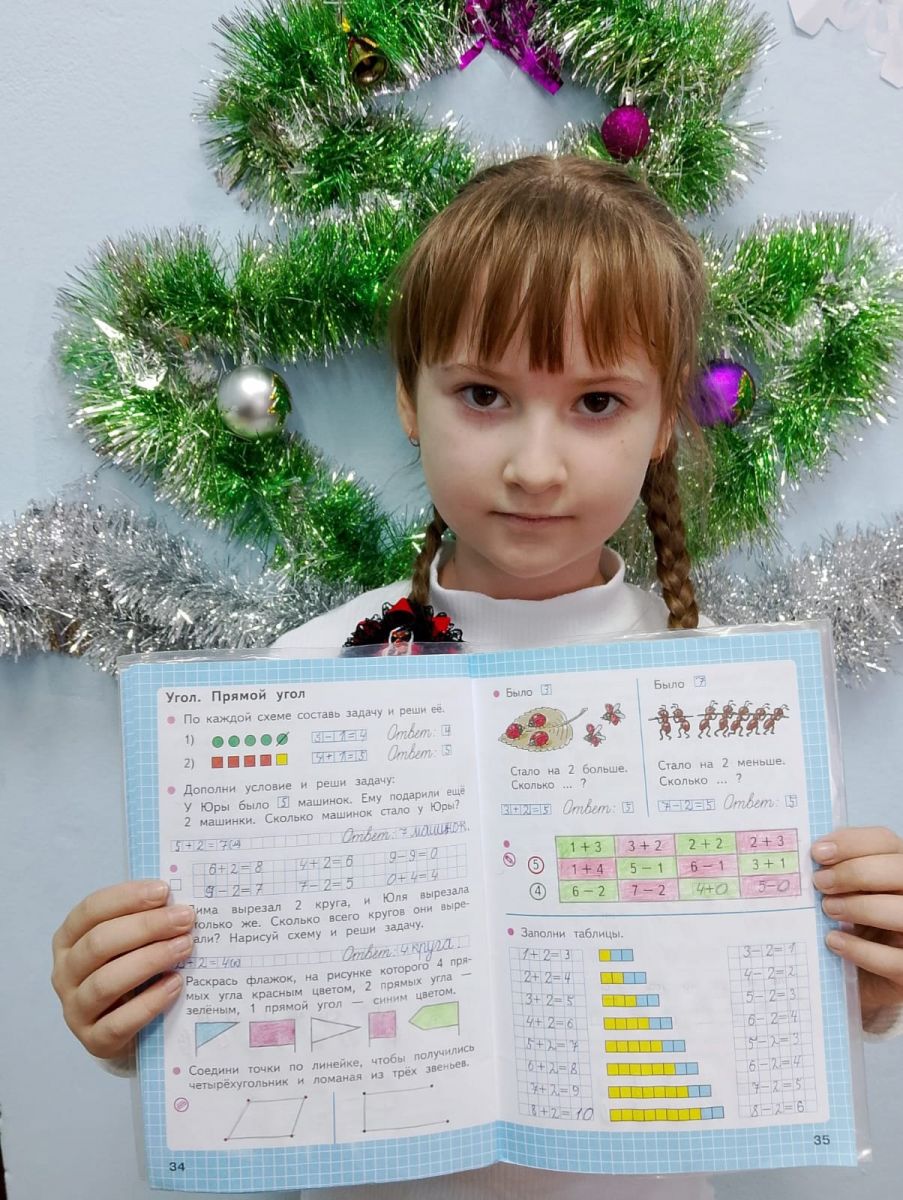 Угол. Прямой угол
По каждой схеме составь задачу и реши её.
1) Ответ: 4
2) 4+1=5 Ответ: 5
Дополни условие и реши задачу:
У Юры было 5 машинок. Ему подарили ещё
2 машинки. Сколько машинок стало у Юры?
5+2=7(м) Ответ: 7 машинок.
6+2=8 4+2=6 9-9=0
9-2=7 7-2=5 0+4=4
вырезал 2 круга, и Юля вырезала
столько же. Сколько всего кругов они выре-
зали? Нарисуй схему и реши задачу.
Ответ: 4 круга.
Раскрась флажок, на рисунке которого 4 пря-
мых угла красным цветом, 2 прямых угла —
зелёным, 1 прямой угол — синим цветом.
Соедини точки по линейке, чтобы получились
четырёхугольник и ломаная из трёх звеньев.
34
Было 3
Стало на 2 больше.
Сколько ... ?
3+2=5 Ответ: 5
Было 7
Стало на 2 меньше.
Сколько ... ?
7-2=5 Ответ: 5
1 + 3 3 + 2 2 + 2 2 + 3
5 1 + 4 5 − 1 6 − 1 3 + 1
4 6 − 2 7 − 2 4+0 5-0
Заполни таблицы.
1+2=3 3-2=1
2+2=4 4-2=2
3+2=5 5-2=3
4+2=6 6-2=4
5+2=7 5-2=3
6+2=8 6-2=4
7+2=9 7-2=5
8+2=10 8-2=6
35